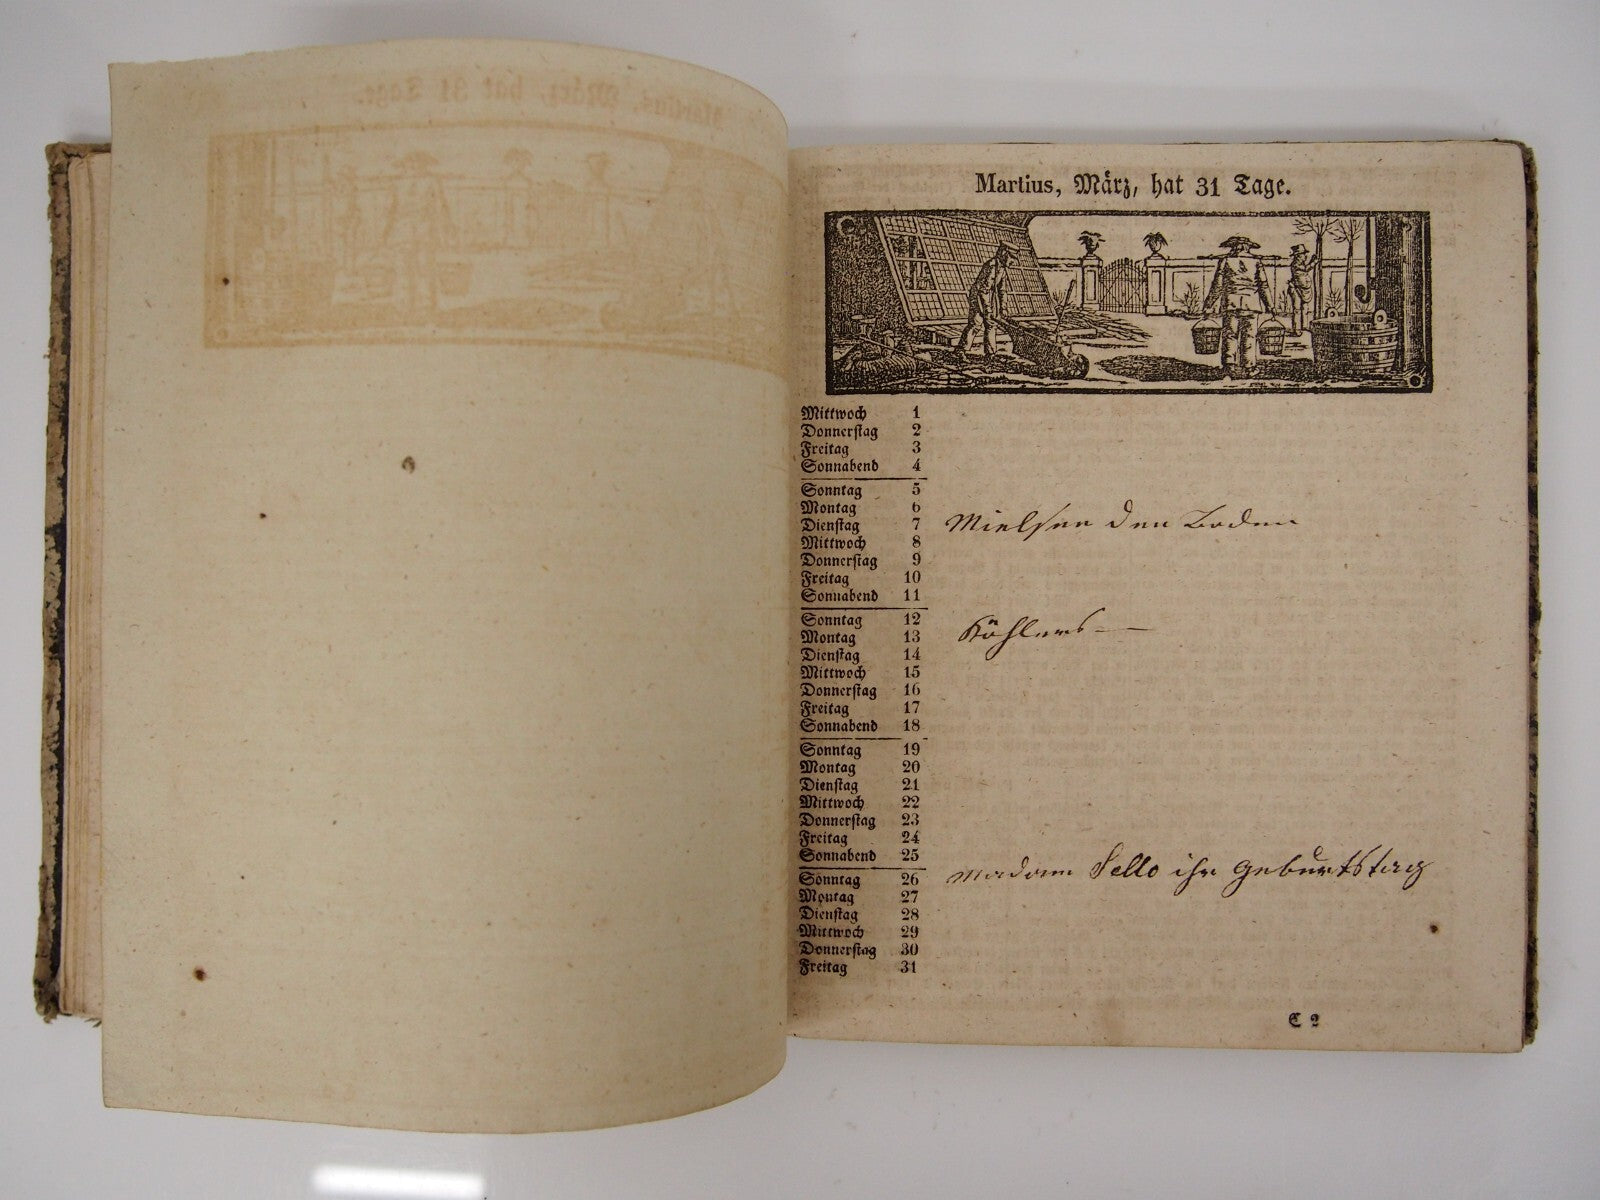 Martius, März, hat 31 Tage.
Mittwoch 1
Donnerstag 2
Freitag 3
Sonnabend 4
Sonntag 5
Montag 6
Dienstag 7 den Boden
Mittwoch 8
Donnerstag 9
Freitag 10
Sonnabend 11
Sonntag 12
Montag 13 Köhlers
Dienstag 14
Mittwoch 15
Donnerstag 16
Freitag 17
Sonnabend 18
Sonntag 19
Montag 20
Dienstag 21
Mittwoch 22
Donnerstag 23
Freitag 24
Sonnabend 25
Sonntag 26 Madam Sello ihr Geburtstag
Montag 27
Dienstag 28
Mittwoch 29
Donnerstag 30
Freitag 31
C 2